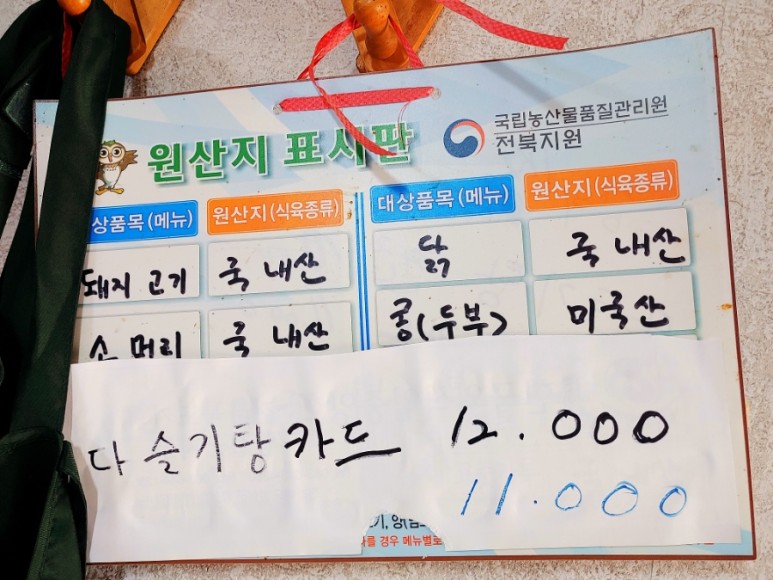 원산지 표시판
국립농산물품질관리원
전북지원
상품목(메뉴) 원산지(식육종류) 대상품목(메뉴) 원산지(식육종류)
돼지 고기 국 내산 닭 국 내산
소 머리 국 내산 콩(두부) 미국산
다슬기탕 카드 12.000
11.000
경우 메뉴별로